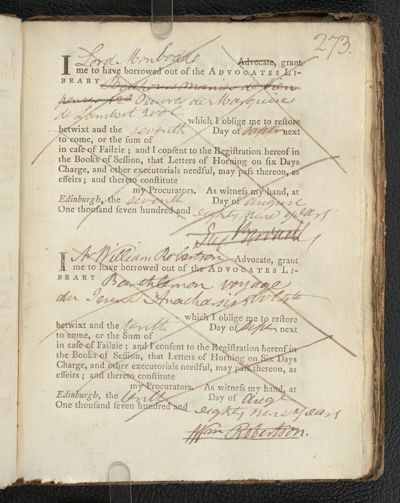 273.
I Lord Monboddo Advocate, grant
me to have borrowed out of the ADVOCATES LI-
BRARY
Oeuvres de Marquise
de Lambert 2 vol
which I oblige me to reſtore
betwixt and the seventh Day of Septr next
to come, or the ſum of
in caſe of Failzie ; and I conſent to the Regiſtration hereof in
the Books of Seſſion, that Letters of Horning on ſix Days
Charge, and other executorials needful, may paſs thereon, as
effeirs ; and thereto conſtitute
my Procurators. As witneſs my hand, at
Edinburgh, the seventh Day of August
One thouſand ſeven hundred and eighty nine years
I Mr William Robertson Advocate, grant
me to have borrowed out of the ADVOCATES LI-
BRARY Barthlemon voyage
du Jeune Anacharsis
which I oblige me to reſtore
betwixt and the tenth Day of Septr next
to come, or the Sum of
in caſe of Failzie ; and I conſent to the Regiſtration hereof in
the Books of Seſſion, that Letters of Horning on Six Days
Charge, and other executorials needful, may paſs thereon, as
effeirs ; and thereto conſtitute
my Procurators. As witneſs my hand, at
Edinburgh, the tenth Day of Augt
One thouſand ſeven hundred and eighty nine years
Wm Robertson.